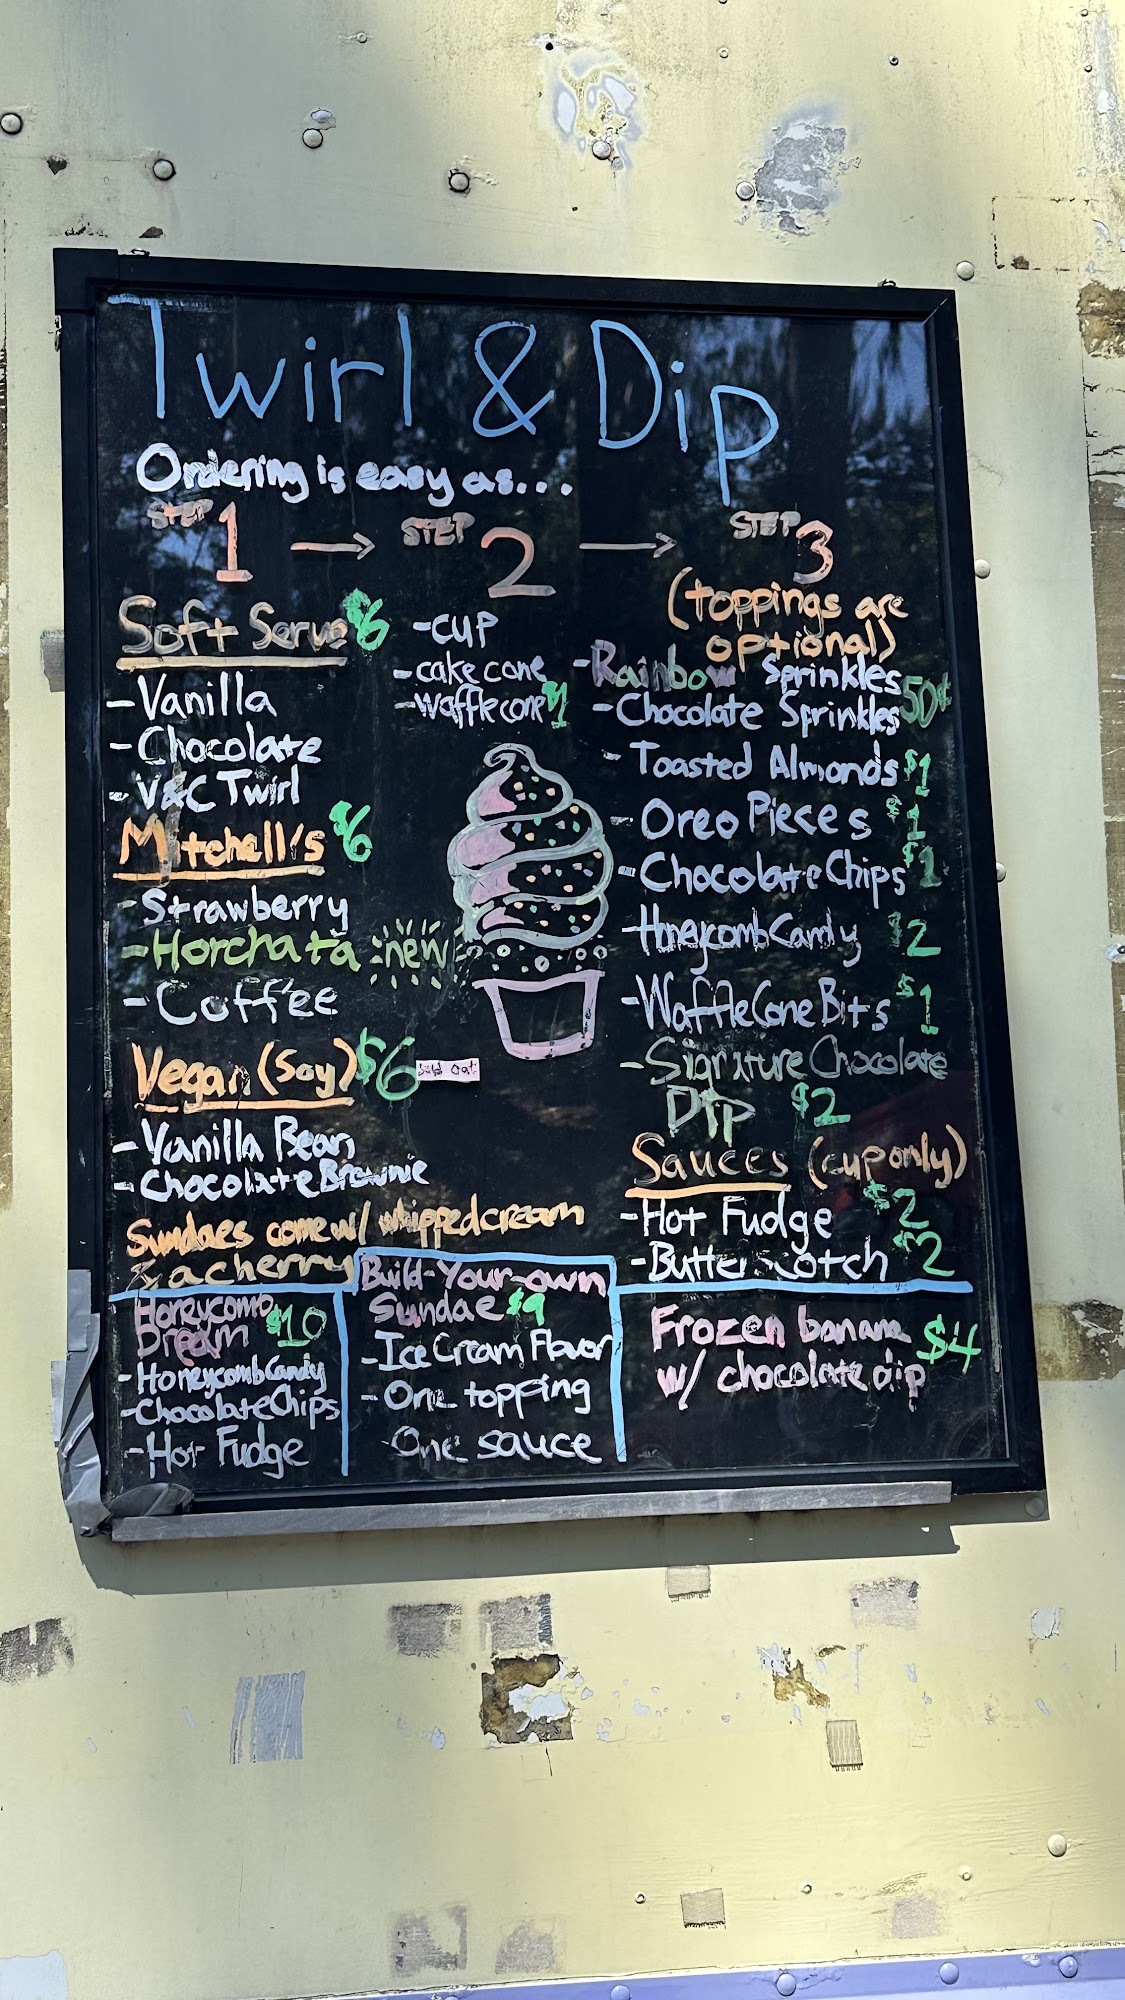 Twirl & Dip
Ordering is easy as...
STEP 1
STEP 2
STEP 3
Soft Serve $6
-Vanilla
-Chocolate
-V&C Twirl
Mitchell's $6
-Strawberry
-Horchata new
-Coffee
Vegan (Soy) $6 Sold Out
-Vanilla Bean
-Chocolate Brownie
-cup
-cake cone
-waffle cone $1
(toppings are
optional)
-Rainbow Sprinkles
-Chocolate Sprinkles 50¢
-Toasted Almonds $1
-Oreo Pieces $1
-Chocolate Chips $1
-Honeycomb Candy $2
-Waffle Cone Bits $1
-Signature Chocolate
Dip $2
Sauces (cup only)
-Hot Fudge $2
-Butterscotch $2
Sundaes come w/ whipped cream
& a cherry
Honeycomb
Dream $10
-Honeycomb Candy
-Chocolate Chips
-Hot Fudge
Build-Your-own
Sundae $9
-Ice Cream Flavor
-One topping
-One sauce
Frozen banana
w/ chocolate dip $4